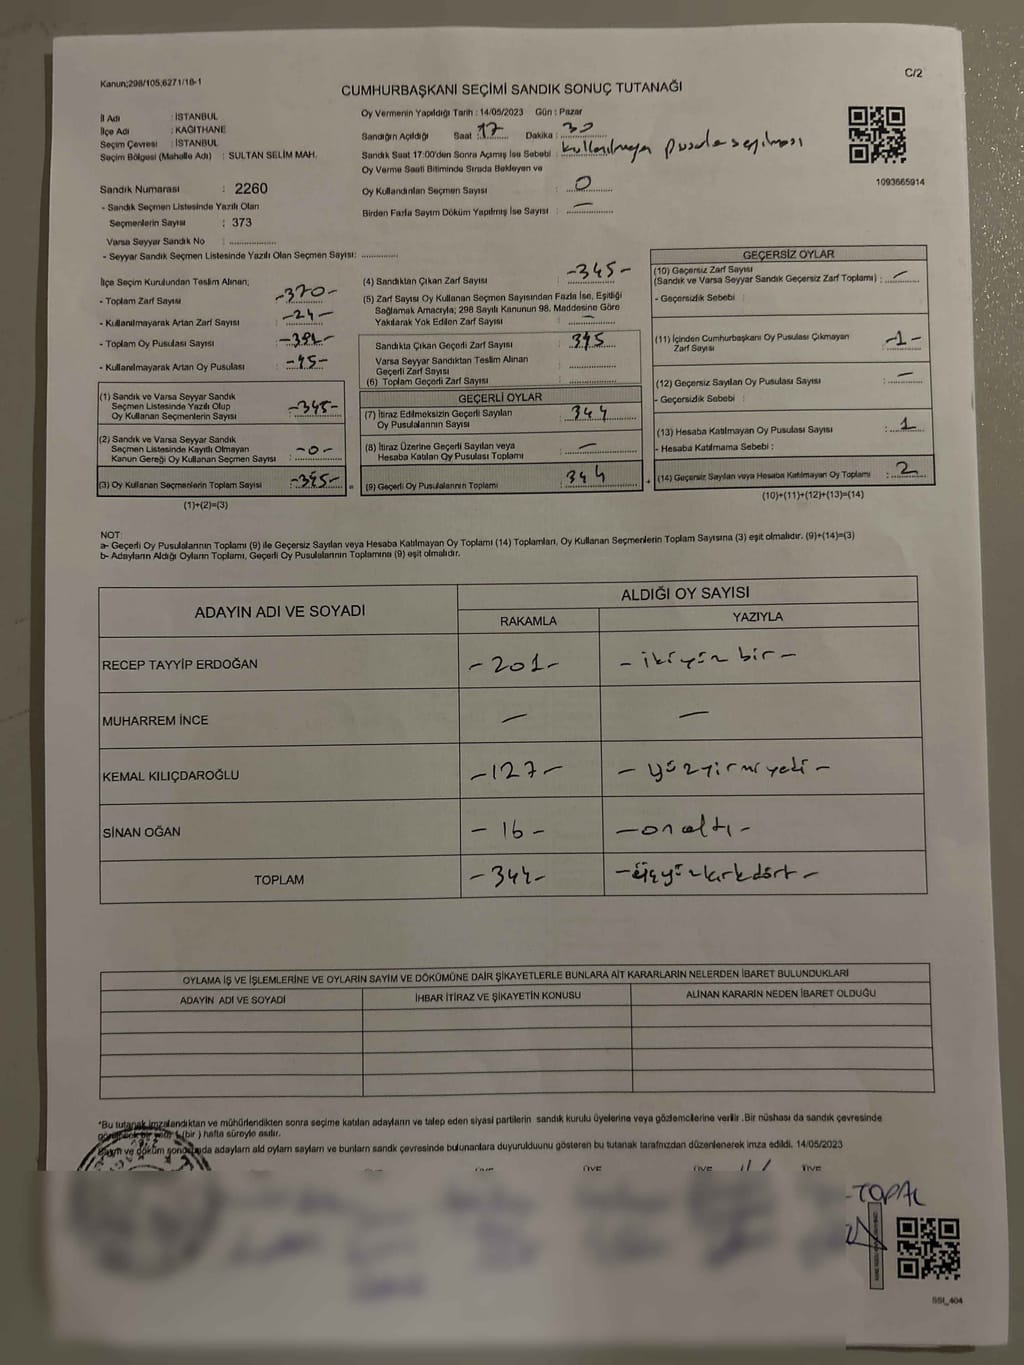 Kanun;298/105,6271/18-1
C/2
CUMHURBAŞKANI SEÇİMİ SANDIK SONUÇ TUTANAĞI
İl Adı : İSTANBUL
İlçe Adı : KAĞITHANE
Seçim Çevresi : İSTANBUL
Seçim Bölgesi (Mahalle Adı) : SULTAN SELİM MAH.
Oy Vermenin Yapıldığı Tarih : 14/05/2023 Gün : Pazar
Sandığın Açıldığı Saat : 17 Dakika : 30
Sandık Saat 17:00'den Sonra Açımış İse Sebebi : kullanılmayan pusula sayılması
Oy Verme Saati Bitiminde Sırada Bekleyen ve
Oy Kullandırılan Seçmen Sayısı : 0
Birden Fazla Sayım Döküm Yapılmış İse Sayısı : —
1093665914
Sandık Numarası : 2260
- Sandık Seçmen Listesinde Yazılı Olan
Seçmenlerin Sayısı : 373
Varsa Seyyar Sandık No : ................
- Seyyar Sandık Seçmen Listesinde Yazılı Olan Seçmen Sayısı: ............
İlçe Seçim Kurulundan Teslim Alınan;
- Toplam Zarf Sayısı : -370-
- Kullanılmayarak Artan Zarf Sayısı : -24-
- Toplam Oy Pusulası Sayısı
- Kullanılmayarak Artan Oy Pusulası : -45-
(1) Sandık ve Varsa Seyyar Sandık
Seçmen Listesinde Yazılı Olup
Oy Kullanan Seçmenlerin Sayısı : -345-
(2) Sandık ve Varsa Seyyar Sandık
Seçmen Listesinde Kayıtlı Olmayan
Kanun Gereği Oy Kullanan Seçmen Sayısı : -0-
(3) Oy Kullanan Seçmenlerin Toplam Sayısı : -345-
(1)+(2)=(3)
(4) Sandıktan Çıkan Zarf Sayısı : -345-
(5) Zarf Sayısı Oy Kullanan Seçmen Sayısından Fazla İse, Eşitliği
Sağlamak Amacıyla; 298 Sayılı Kanunun 98. Maddesine Göre
Yakılarak Yok Edilen Zarf Sayısı : —
Sandıkta Çıkan Geçerli Zarf Sayısı : 345
Varsa Seyyar Sandıktan Teslim Alınan
Geçerli Zarf Sayısı
(6) Toplam Geçerli Zarf Sayısı
GEÇERLİ OYLAR
(7) İtiraz Edilmeksizin Geçerli Sayılan
Oy Pusulalarının Sayısı : 344
(8) İtiraz Üzerine Geçerli Sayılan veya
Hesaba Katılan Oy Pusulası Toplamı : —
(9) Geçerli Oy Pusulalarının Toplamı : 344
GEÇERSİZ OYLAR
(10) Geçersiz Zarf Sayısı
(Sandık ve Varsa Seyyar Sandık Geçersiz Zarf Toplamı) : —
- Geçersizlik Sebebi :
(11) İçinden Cumhurbaşkanı Oy Pusulası Çıkmayan
Zarf Sayısı : -1-
(12) Geçersiz Sayılan Oy Pusulası Sayısı : —
- Geçersizlik Sebebi :
(13) Hesaba Katılmayan Oy Pusulası Sayısı : 1
- Hesaba Katılmama Sebebi :
(14) Geçersiz Sayılan veya Hesaba Katılmayan Oy Toplamı : 2
(10)+(11)+(12)+(13)=(14)
NOT:
a- Geçerli Oy Pusulalarının Toplamı (9) ile Geçersiz Sayılan veya Hesaba Katılmayan Oy Toplamı (14) Toplamları, Oy Kullanan Seçmenlerin Toplam Sayısına (3) eşit olmalıdır. (9)+(14)=(3)
b- Adayların Aldığı Oyların Toplamı, Geçerli Oy Pusulalarının Toplamına (9) eşit olmalıdır.
ADAYIN ADI VE SOYADI ALDIĞI OY SAYISI
RAKAMLA YAZIYLA
RECEP TAYYİP ERDOĞAN -201- -ikiyüz bir-
MUHARREM İNCE — —
KEMAL KILIÇDAROĞLU -127- -yüzyirmiyedi-
SİNAN OĞAN -16- -onaltı-
TOPLAM -344- -üçyüzkırkdört-
OYLAMA İŞ VE İŞLEMLERİNE VE OYLARIN SAYIM VE DÖKÜMÜNE DAİR ŞİKAYETLERLE BUNLARA AİT KARARLARIN NELERDEN İBARET BULUNDUKLARI
ADAYIN ADI VE SOYADI İHBAR İTİRAZ VE ŞİKAYETİN KONUSU ALINAN KARARIN NEDEN İBARET OLDUĞU
*Bu tutanak imzalandıktan ve mühürlendikten sonra seçime katılan adayların ve talep eden siyasi partilerin sandık kurulu üyelerine veya gözlemcilerine verilir .Bir nüshası da sandık çevresinde
(bir ) hafta süreyle asılır.
ve döküm adayların ald oyların sayların ve bunların sandk çevresinde bulunanlara duyurulduunu gösteren bu tutanak tarafınzdan düzenlenerek imza edildi. 14/05/2023
TOPAL
SSI_404